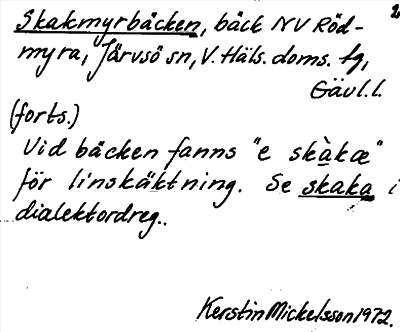 2
Skakmyrbäcken, bäck NV Röd-
myra, Järvsö sn, V. Häls. doms. tg,
Gävl.l.
(forts.)
Vid bäcken fanns "e skàkæ"
för linskäktning. Se skaka i
dialektordreg..
Kerstin Mickelsson 1972.